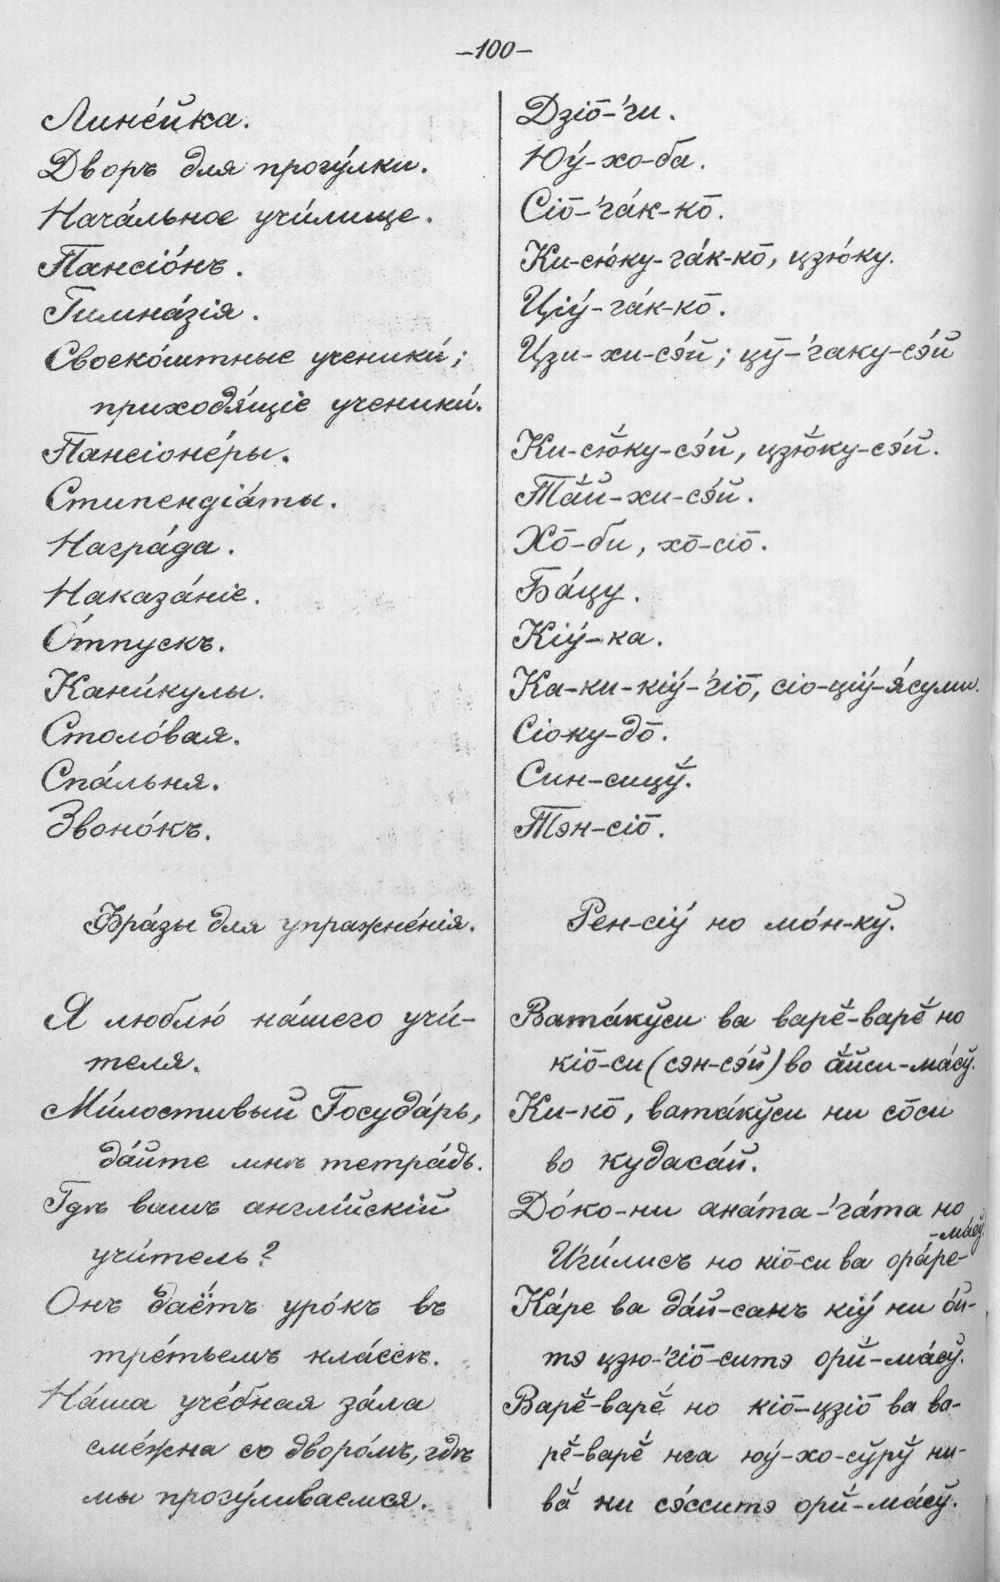 –100–
Лине́йка.
Дворъ для прогу́лки.
Нача́льное учи́лище.
Пансіо́нъ.
Гимна́зія.
Своеко́штные ученики́;
приходя́щіе ученики́.
Пансіоне́ры.
Стипендіа́ты.
Награ́да.
Наказа́ніе.
О́тпускъ.
Кани́кулы.
Столо́вая.
Спа́льня.
Звоно́къ.
Фра́зы для упражне́нія.
Я люблю́ на́шего учи́-
теля.
Ми́лостивый Госуда́рь,
да́йте мнѣ тетра́дь.
Гдѣ вашъ англі́йскій
учи́тель?
Онъ даётъ уро́къ въ
тре́тьемъ кла́ссѣ.
На́ша уче́бная за́ла
сме́жна со дворо́мъ, гдѣ
мы прогу́ливаемся.
Дзіо̄-'ги.
Юу́-хо-ба.
Сіо̄-'га́к-ко̄.
Ки-сю́ку-га́к-ко̄, цзю́ку.
Ціу́-га́к-ко̄.
Цзи-хи-сэ́й; цӯ-'гаку-сэ́й
Ки-сю̆́ку-сэ́й, цзю̆́ку-сэ́й.
Та́й-хи-сэ́й.
Хо̄-би, хо̄-сіо̄.
Ба́цу.
Кіу́-ка.
Ка-ки-кіу́-'гіо̄, сіо-ціу́-я́суми.
Сіоку-до̄.
Син-сицў́.
Тэн-сіо̄.
Рен-сіу́ но мо́н-кў.
Вата́кўси ва варӗ́-варӗ́ но
кіо̄-си (сэн-сэ́й) во а́йси-ма́сў.
Ки-ко̄, вата́кўси ни со̄си
во кудаса́й.
До́ко-ни ана́та-'га́та но
Иги́лисъ но кіо̄-си ва ора́ре-
-ма́сў
Ка́ре ва да́й-санъ кіу́ ни о́и-
тэ цзю-'гіо̄-ситэ орй́-ма́сў.
Варӗ́-варӗ́ но кіо̄-цзіо̄ ва ва-
рӗ́-варӗ́ нга юу́-хо-сўрў́ ни-
ва́ ни сэ́сситэ орй́-ма́сў.